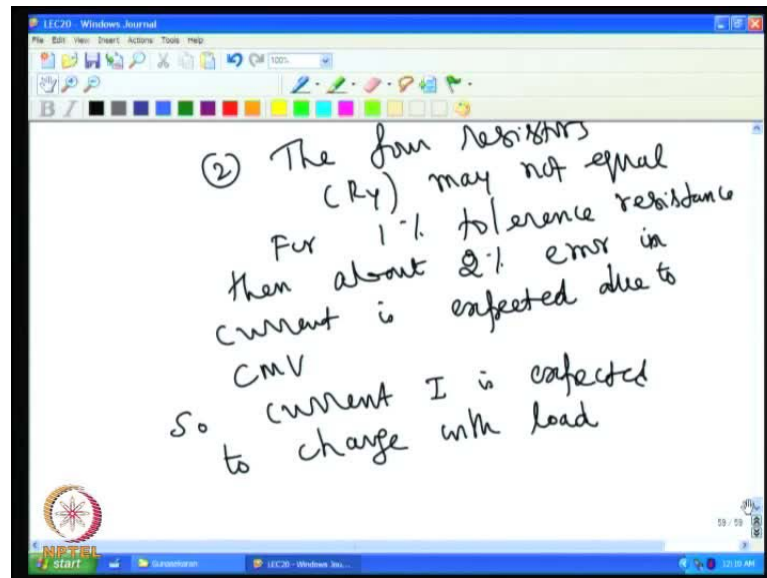 LEC20 - Windows Journal
File Edit View Insert Actions Tools Help
100%
B I
② The four resistors
(Ry) may not equal
For 1% tolerence resistance
then about 2% error in
current is expected due to
CMV
So current I is expected
to change with load
59 / 59
NPTEL
start Gunasekaran LEC20 - Windows Jou... 12:10 AM